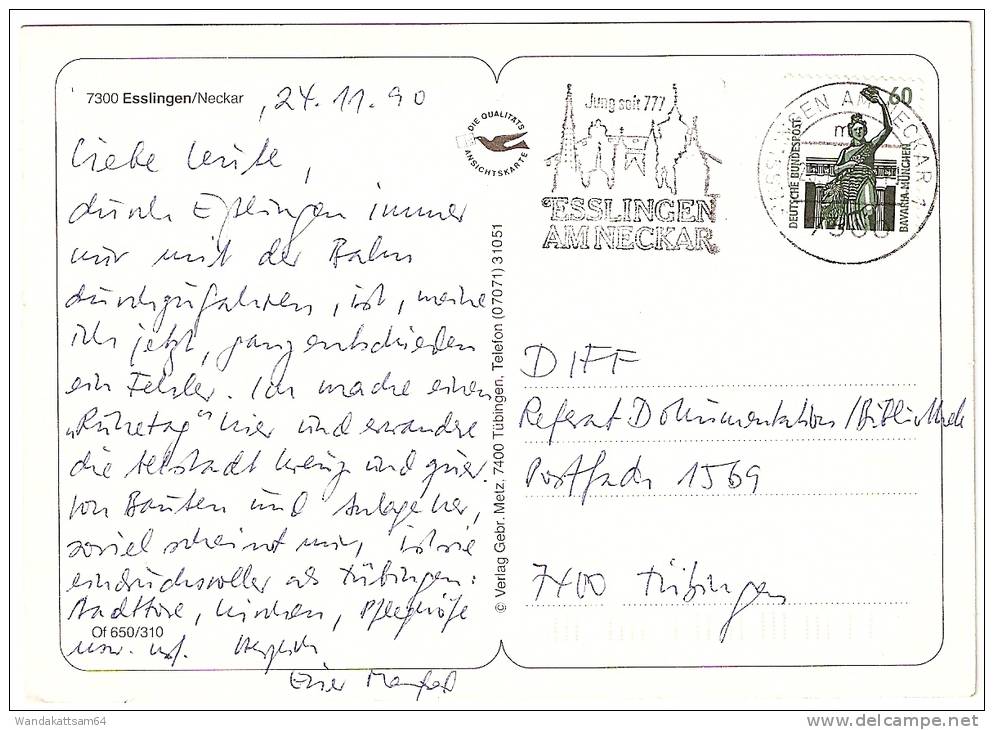 7300 Esslingen/Neckar
, 24.11.90
Liebe Leute,
durch Eßlingen immer
nur mit der Bahn
durchzufahren, ist, meine
ich jetzt, ganz entschieden
ein Fehler. Ich mache einen
„Ruhetag“ hier und erwandere
die Altstadt kreuz und quer.
Von Bauten und Anlage her,
soviel scheint mir, ist sie
eindrucksvoller als Tübingen:
Stadttore, Kirchen, Pfleghöfe
usw. usf. Herzlich
Euer Manfred
Of 650/310
DIE QUALITÄTS
ANSICHTSKARTE
© Verlag Gebr. Metz, 7400 Tübingen, Telefon (07071) 31051
Jung seit 777
ESSLINGEN
AM NECKAR
ESSLINGEN AM NECKAR 1
7300
60
DEUTSCHE BUNDESPOST
BAVARIA-MÜNCHEN
DIFF
Referat Dokumentation/Bibliothek
Postfach 1569
7400 Tübingen
Wandakattsam64
www.delcampe.net